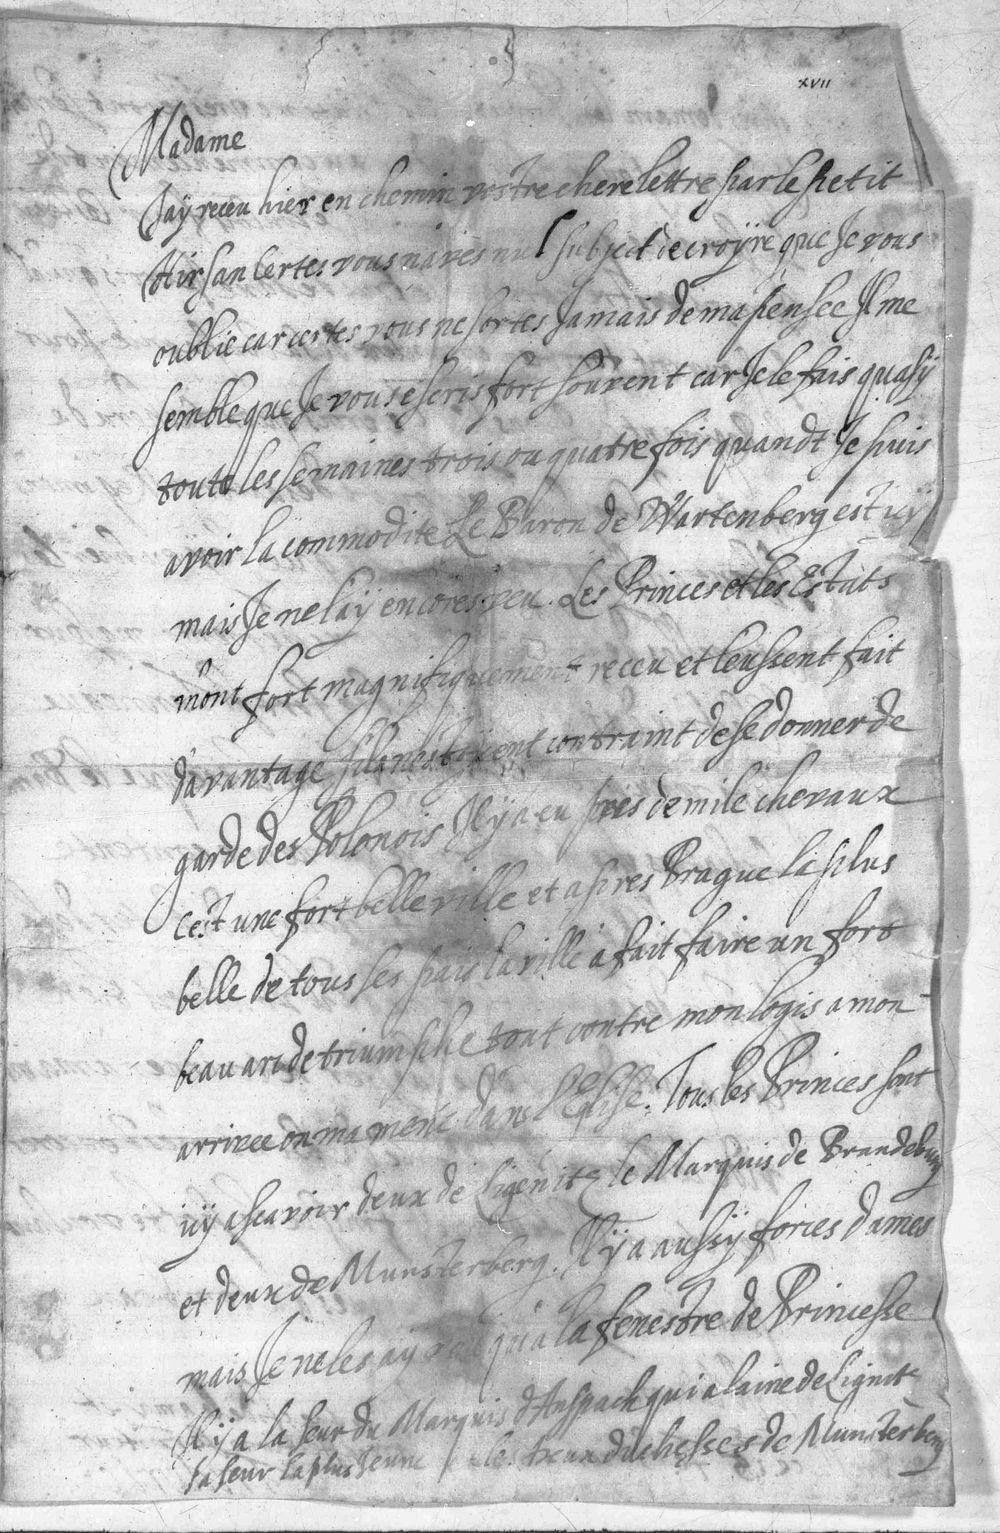 xvii
Madame
Jaÿ receu hier en chemin vostre chere lettre par le petit
Hirsan certes vous naves nul subject de croÿre que Je vous
oublie car certes vous ne sortes Jamais de ma pensee Il me
semble que Je vous escris fort souvent car Je le fais quasÿ
toute les semaines trois ou quatre fois quandt Je puis
avoir la commodite Le Baron de Wartenberg est icÿ
mais Je ne laÿ encores veu. Les Princes et les Estats
mont fort magnifiquement receu et leussent fait
davantage silz nestoÿent contraint de se donner de
garde des Polonois Il ÿ a eu pres de mile chevaux
cest une fort belle ville et apres Prague la plus
belle de tous ses pais la ville a fait faire un fort
beau arc de triumphe tout contre mon logis a mon
arrivee on ma mené dans l'Eglise. Tous les Princes sont
icÿ a scavoir deux de Ligenitz le Marquis de Brandeburg
et deux de Munsterberg. Il ÿ a aussÿ forces dames
mais Je ne les aÿ qu a la fenestre de Princesse
Il ÿ a la seur du Marquis d'Anspach qui a laine de Lignits
sa seur la plus Jeune les deux duchesses de Munsterberg